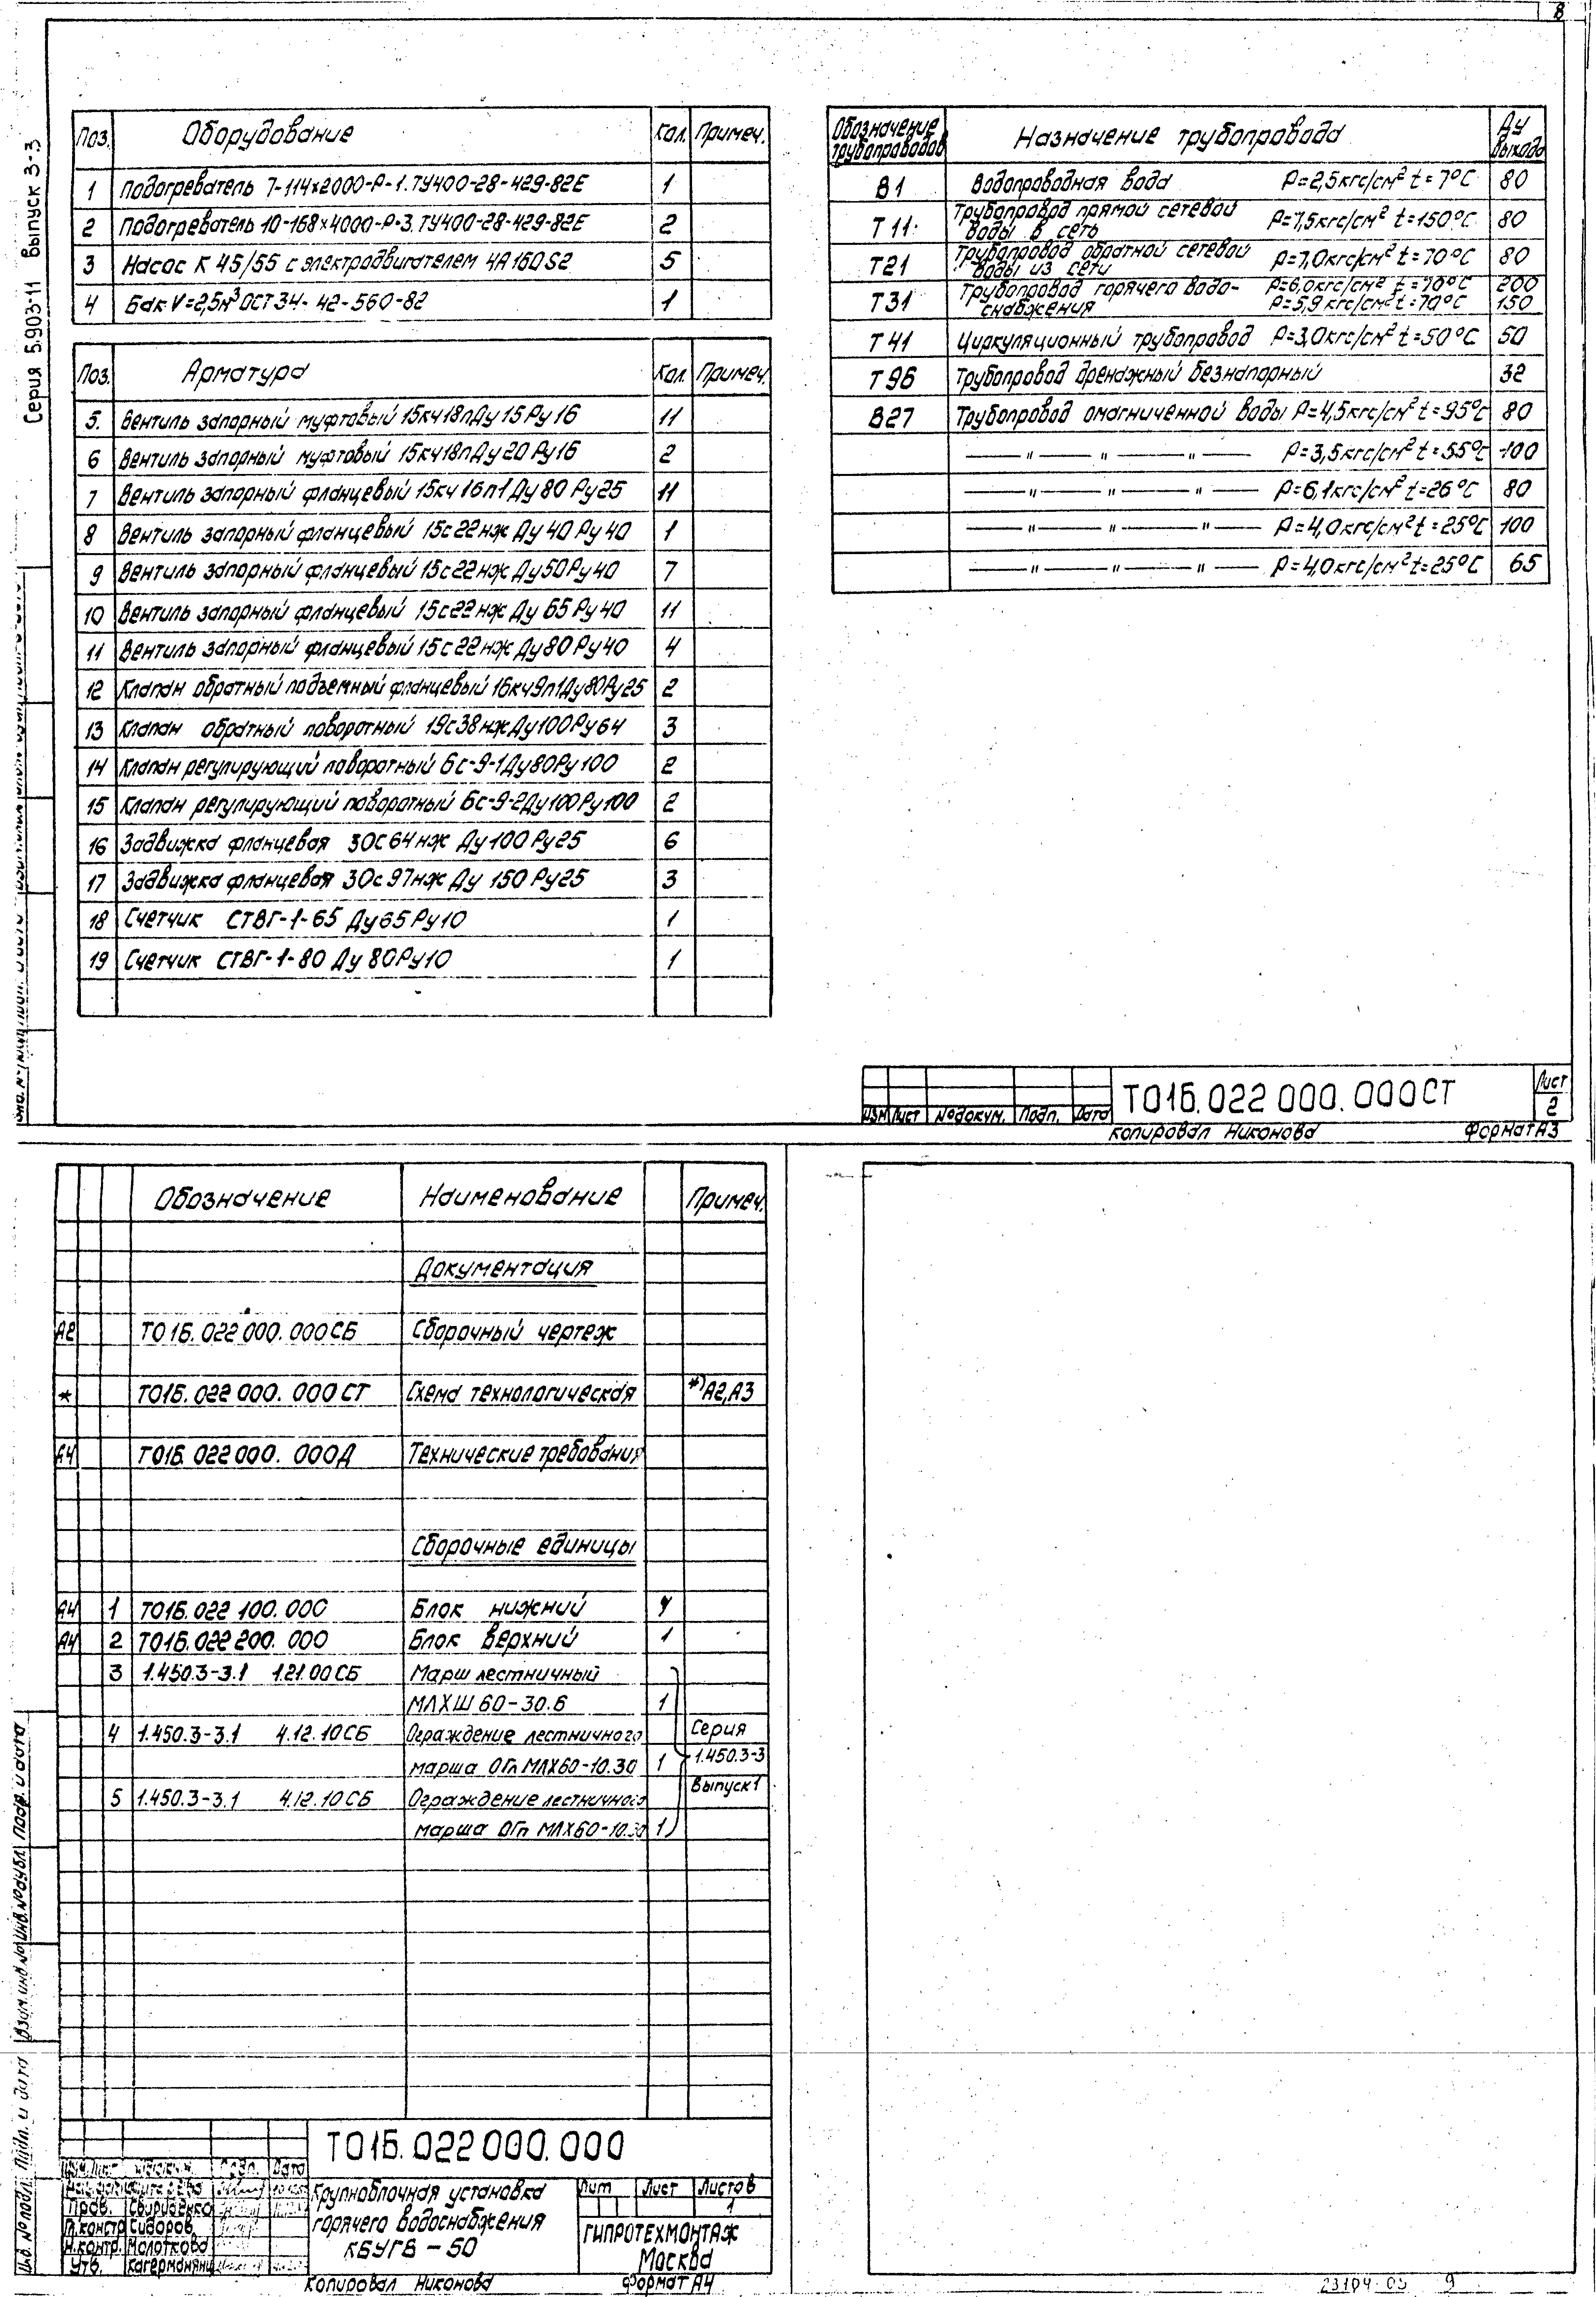 8
Серия 5.903-11 выпуск 3-3
Поз. Оборудование Кол. Примеч.
1 Подогреватель 7-114х2000-Р-1. ТУ400-28-429-82Е 1
2 Подогреватель 10-168х4000-Р-3. ТУ400-28-429-82Е 2
3 Насос К 45/55 с электродвигателем 4А160S2 5
4 Бак V=2,5м³ ОСТ34-42-560-82 1
Поз. Арматура Кол. Примеч.
5. Вентиль запорный муфтовый 15кч18п Ду 15 Ру 16 11
6 Вентиль запорный муфтовый 15кч18п Ду 20 Ру16 2
7 Вентиль запорный фланцевый 15кч 16п1 Ду 80 Ру25 11
8 Вентиль запорный фланцевый 15с22нж Ду 40 Ру 40 1
9 Вентиль запорный фланцевый 15с22нж Ду50Ру40 7
10 Вентиль запорный фланцевый 15с22нж Ду 65 Ру40 11
11 Вентиль запорный фланцевый 15с22нж Ду80Ру40 4
12 Клапан обратный подъемный фланцевый 16кч9п1Ду80Ру25 2
13 Клапан обратный поворотный 19с38нж Ду100Ру64 3
14 Клапан регулирующий поворотный 6с-9-1Ду80Ру100 2
15 Клапан регулирующий поворотный 6с-9-2Ду100Ру100 2
16 Задвижка фланцевая 30с64нж Ду100 Ру25 6
17 Задвижка фланцевая 30с97нж Ду 150 Ру25 3
18 Счетчик СТВГ-1-65 Ду65 Ру10 1
19 Счетчик СТВГ-1-80 Ду 80Ру10 1
Обозначение трубопроводов Назначение трубопровода Ду выхода
В1 Водопроводная вода Р=2,5кгс/см² t=7°С 80
Т11 Трубопровод прямой сетевой воды в сеть Р=7,5кгс/см² t=150°С 80
Т21 Трубопровод обратной сетевой воды из сети Р=7,0кгс/см² t=70°С 80
Т31 Трубопровод горячего водо- Р=6,0кгс/см² t=70°С 200
снабжения Р=5,9кгс/см² t=70°С 150
Т41 Циркуляционный трубопровод Р=3,0кгс/см² t=50°С 50
Т96 Трубопровод дренажный безнапорный 32
В27 Трубопровод омагниченной воды Р=4,5кгс/см² t=95°С 80
— " — " — " — Р=3,5кгс/см² t=55°С 100
— " — " — " — Р=6,1кгс/см² t=26°С 80
— " — " — " — Р=4,0кгс/см² t=25°С 100
— " — " — " — Р=4,0кгс/см² t=25°С 65
Изм Лист №докум. Подп. Дата
ТО1Б.022 000.000СТ
Лист
2
Копировал Никонова Формат А3
Обозначение Наименование Примеч.
Документация
А2 ТО1Б.022 000.000СБ Сборочный чертеж
* ТО1Б.022 000.000 СТ Схема технологическая *) А2,А3
А4 ТО1Б.022 000.000Д Технические требования
Сборочные единицы
А4 1 ТО1Б.022 100.000 Блок нижний
А4 2 ТО1Б.022 200.000 Блок верхний 1
3 1.450.3-3.1 1.21.00СБ Марш лестничный
МЛХШ 60-30.6 1
4 1.450.3-3.1 4.12.10СБ Ограждение лестничного Серия
марша ОГл МЛХ60-10.30 1 1.450.3-3
Выпуск1
5 1.450.3-3.1 4.12.10СБ Ограждение лестничного
марша ОГп МЛХ60-10.30 1
Инв.№подл. Подп. и дата Взам.инв.№ Инв.№дубл. Подп. и дата
ТО1Б.022 000.000
Подп. Дата
Пров. Свириденко
Гл.констр Сидоров
Н.контр. Молоткова
Утв.
Крупноблочная установка
горячего водоснабжения
КБУГВ-50
Лит Лист Листов
1
ГИПРОТЕХМОНТАЖ
Москва
Копировал Никонова Формат А4
23104-03 9